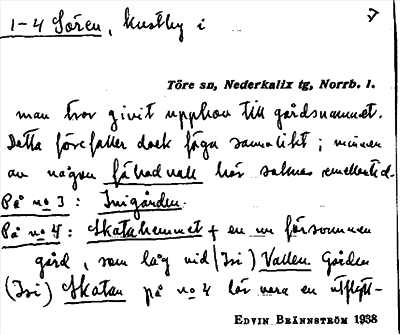 1-4 Sören, kustby i
7
Töre sn, Nederkalix tg, Norrb. l.
man tror givit upphov till gårdsnamnet.
Detta förefaller dock föga sannolikt; minnen
av någon fäbodvall här saknas emellertid.
På no 3: Inigården.
På no 4: Skatahemmet + en nu försvunnen
gård, som låg vid (Isi) Vallen Gården
(Isi) Skatan på no 4 lär vara en utflytt-
EDVIN BRÄNNSTRÖM 1938